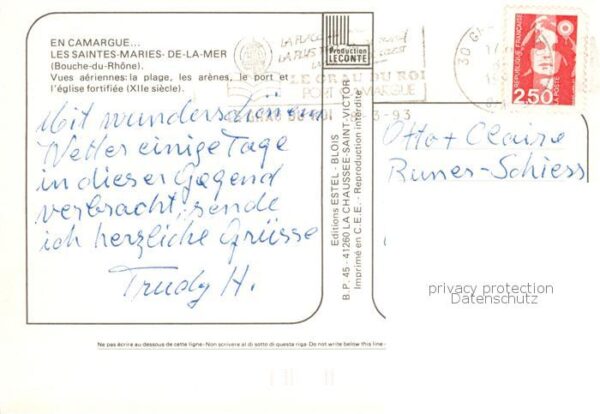 EN CAMARGUE...
LES SAINTES-MARIES-DE-LA-MER
(Bouche-du-Rhône).
Vues aériennes: la plage, les arènes, le port et
l'église fortifiée (XIIe siècle).
Mit wunderschönem
Wetter einige Tage
in dieser Gegend
verbracht, sende
ich herzliche Grüsse
Trudy H.
Production
LECONTE
LA PLAGE
LA PLUS
LE GRAU DU ROI
PORT CAMARGUE
8-3-93
30 G
Editions ESTEL - BLOIS
B.P. 45 - 41260 LA CHAUSSEE-SAINT-VICTOR
Imprimé en C.E.E. - Reproduction interdite
REPUBLIQUE FRANÇAISE
LA POSTE
2,50
Otto + Claire
Runer-Schiess
privacy protection
Datenschutz
Ne pas écrire au-dessous de cette ligne - Non scrivere al di sotto di questa riga - Do not write below this line -